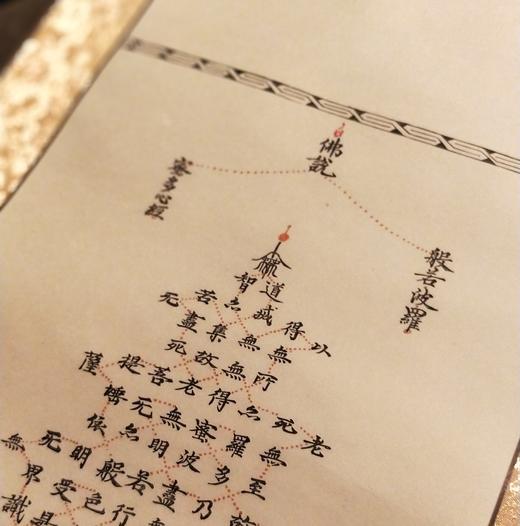 佛說
般若波羅
蜜多心經
智道
无苦亦滅得以
盡集無無
死故無所
薩提菩老得亦死老
埵无無蜜羅無
依亦明波多至
無死明般若盡乃
界受色行
識